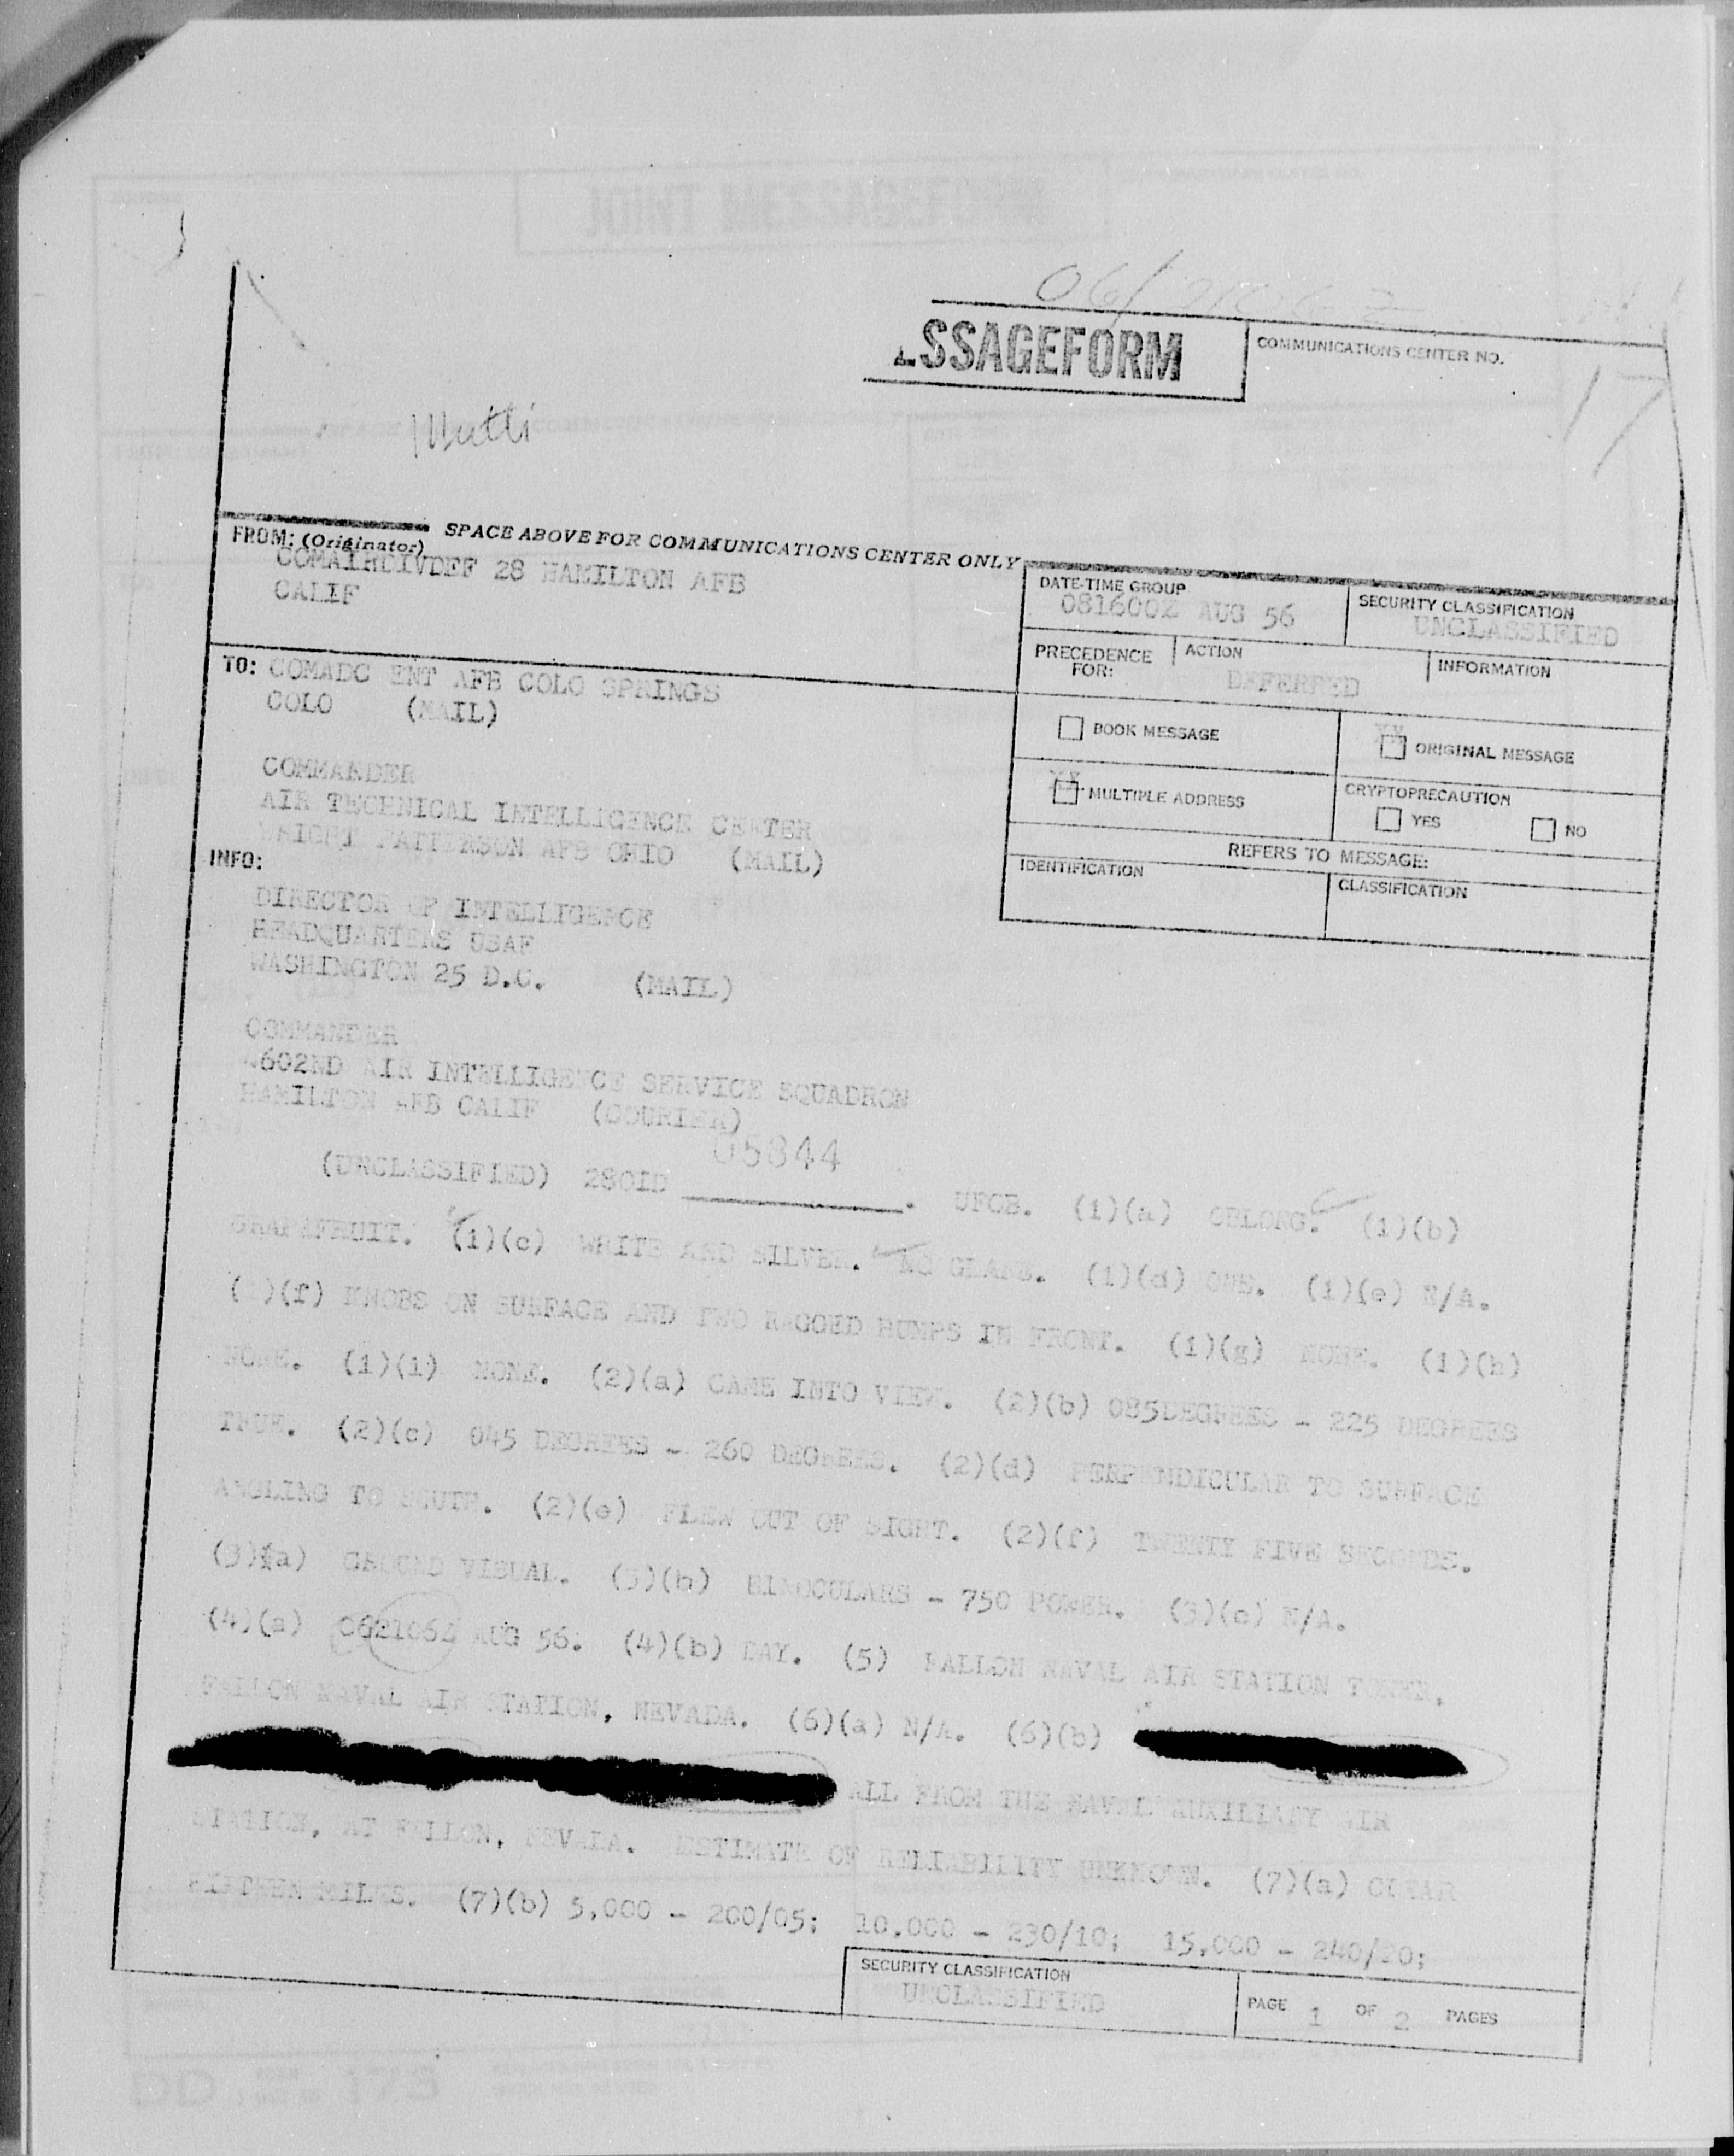 JOINT MESSAGEFORM
SSAGEFORM
COMMUNICATIONS CENTER NO.
17
SPACE ABOVE FOR COMMUNICATIONS CENTER ONLY
FROM: (Originator)
COMAIRDIVDEF 28 HAMILTON AFB
CALIF
DATE-TIME GROUP
081600Z AUG 56
SECURITY CLASSIFICATION
UNCLASSIFIED
PRECEDENCE FOR:
ACTION
DEFERRED
INFORMATION
TO: COMADC ENT AFB COLO SPRINGS
COLO (MAIL)
BOOK MESSAGE
XX ORIGINAL MESSAGE
XX MULTIPLE ADDRESS
CRYPTOPRECAUTION
YES NO
REFERS TO MESSAGE:
IDENTIFICATION
CLASSIFICATION
COMMANDER
AIR TECHNICAL INTELLIGENCE CENTER
WRIGHT PATTERSON AFB OHIO (MAIL)
INFO:
DIRECTOR OF INTELLIGENCE
HEADQUARTERS USAF
WASHINGTON 25 D.C. (MAIL)
COMMANDER
4602ND AIR INTELLIGENCE SERVICE SQUADRON
HAMILTON AFB CALIF (COURIER)
(UNCLASSIFIED) 28OID 05844. UFOB. (1)(a) OBLONG. (1)(b)
GRAPEFRUIT. (1)(c) WHITE AND SILVER. NO GLARE. (1)(d) ONE. (1)(e) N/A.
(1)(f) KNOBS ON SURFACE AND TWO RAGGED HUMPS IN FRONT. (1)(g) NONE. (1)(h)
NONE. (1)(i) NONE. (2)(a) CAME INTO VIEW. (2)(b) 085DEGREES - 225 DEGREES
TRUE. (2)(c) 045 DEGREES - 260 DEGREES. (2)(d) PERPENDICULAR TO SURFACE
ANGLING TO SOUTH. (2)(e) FLEW OUT OF SIGHT. (2)(f) TWENTY FIVE SECONDS.
(3)(a) GROUND VISUAL. (3)(b) BINOCULARS - 750 POWER. (3)(c) N/A.
(4)(a) 062106Z AUG 56. (4)(b) DAY. (5) FALLON NAVAL AIR STATION TOWER,
FALLON NAVAL AIR STATION, NEVADA. (6)(a) N/A. (6)(b)
ALL FROM THE NAVAL AUXILIARY AIR
STATION, AT FALLON, NEVADA. ESTIMATE OF RELIABILITY UNKNOWN. (7)(a) CLEAR
FIFTEEN MILES. (7)(b) 5,000 - 200/05; 10,000 - 230/10; 15,000 - 240/20;
SECURITY CLASSIFICATION
UNCLASSIFIED
PAGE 1 OF 2 PAGES
DD 173